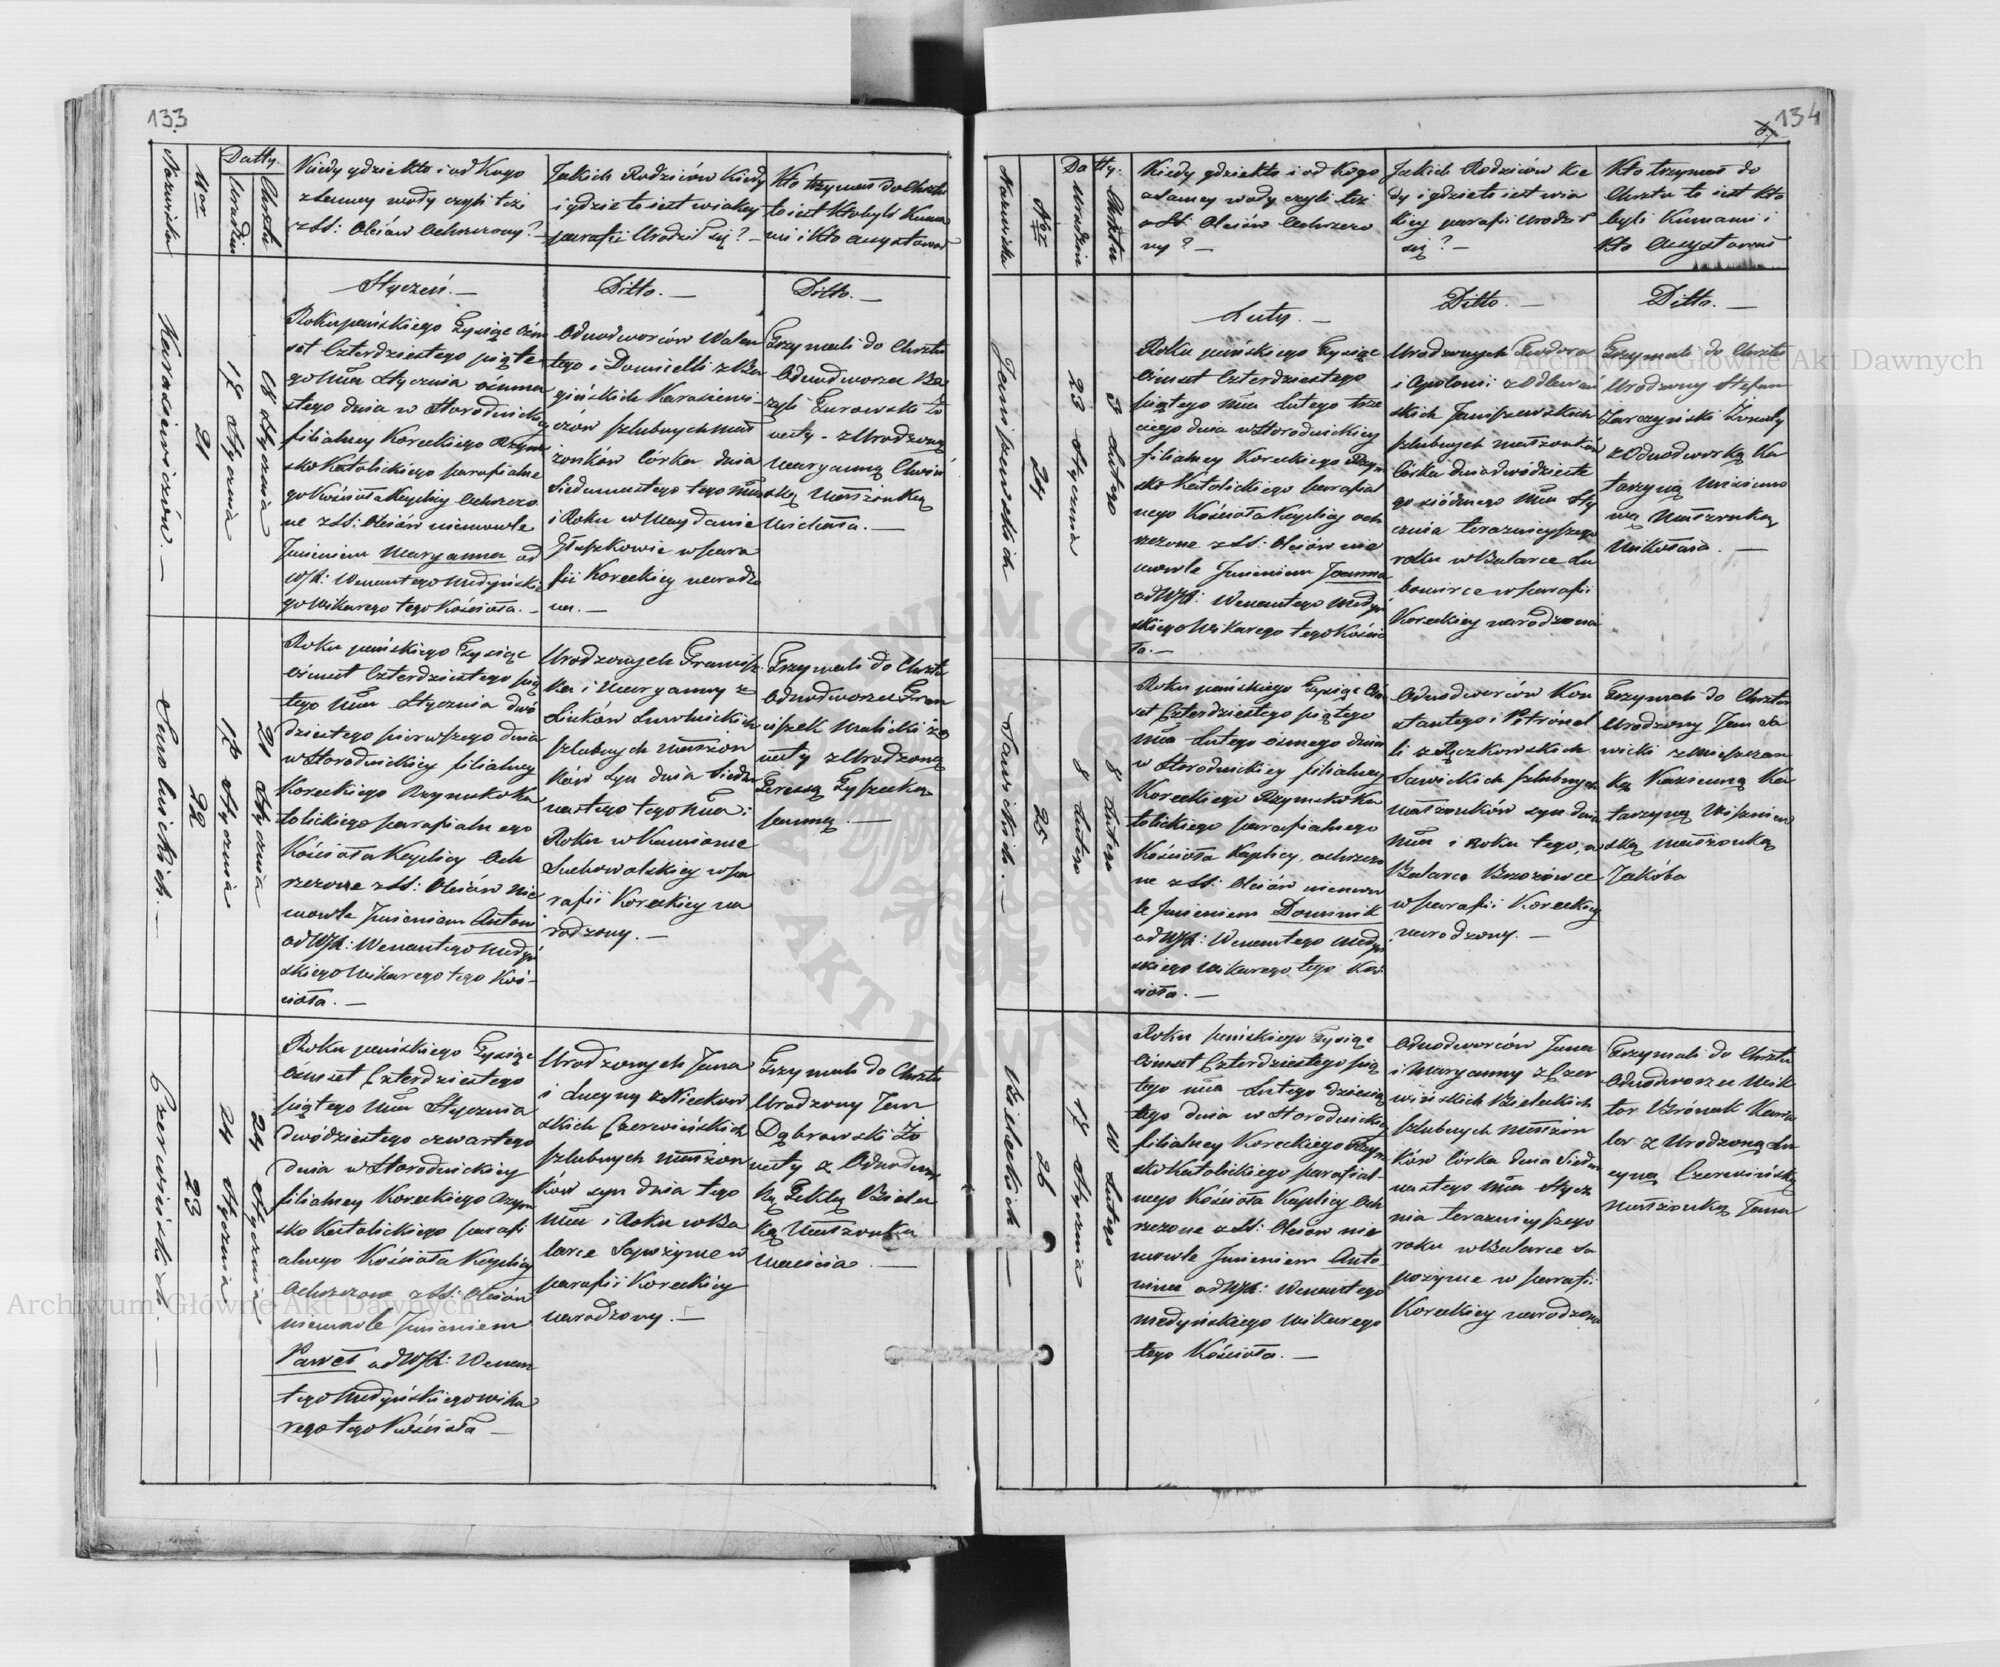 133
Nazwiska
Nor
Datty.
Urodzin
Chrztu
Kiedy gdzie kto i od Kogo
z samey wody czyli też
z SS: Olejów Ochrzczony? -
Jakich Rodziców Kiedy
i gdzie to iest w iakiey
parafii Urodził się? -
Kto trzymał do Chrztu
to iest kto byli Kuma
mi i Kto assystował
Styczeń. -
Ditto. -
Ditto. -
Karasiewiczów. -
21
17 Stycznia
18 Stycznia
Roku pańskiego Tysiąc Ośm
set Czterdziestego piąte
go Mca Stycznia ośmna
stego dnia w Horodnickiey
filialney Koreckiego Rzym
sko Katolickiego parafialne
go Kościoła Kaplicy Ochrzczo
ne z SS: Olejów niemowle
Imieniem Maryanna od
WJX: Wenantego Medyńskie
go Wikarego tego Kościoła. -
Odnodworców Walen
tego i Domicelli z Ba
gińskich Karasiewi-
czów szlubnych Mał
żonków Córka dnia
Siedemnastego tego Mca
i Roku w Maydanie
Głuszkowie w para
fii Koreckiey narodzo
na. -
Trzymali do Chrztu
Odnodworzec Ba
zyli Żurowski Żo
naty - z Urodzoną
Maryanną Chwiń
ską Małżonką
Michała. -
22
17 Stycznia
21 Stycznia
Roku pańskiego Tysiąc
ośmset Czterdziestego pią
tego Mca Stycznia dwó
dziestego pierwszego dnia
w Horodnickiey filialney
Koreckiego Rzymsko Ka
tolickiego parafialnego
Kościoła Kaplicy Och
rzczone z SS: Olejów nie
mowle Imieniem Antoni
od WJX: Wenantego Medyń
skiego Wikarego tego Koś-
cioła. -
Urodzonych Francisz
ka i Maryanny z
szlubnych Małżon
ków Syn dnia Siedm
nastego tego Mca i
Roku w Kamionce
Suchowolskiey w pa
rafii Koreckiey na
rodzony. -
Trzymali do Chrztu
Odnodworzec Fran
ciszek Malicki żo
naty z Urodzoną
Teressą
panną. -
Czerwińskich. -
23
24 Stycznia
24 Stycznia
Roku pańskiego Tysiąc
ośmset Czterdziestego
piątego Mca Stycznia
dwódziestego czwartego
dnia w Horodnickiey
filialney Koreckiego Rzym
sko Katolickiego parafi
alnego Kościoła Kaplicy
Ochrzczone z SS: Olejów
niemowle Imieniem
Paweł od WJX: Wenan
tego Medyńskiego Wika
rego tego Kościoła -
Urodzonych Jana
i Lucyny z Nieckow
skich Czerwińskich
szlubnych Małżon
ków syn dnia tego
Mca i Roku w Ba
larce Sapożynce w
parafii Koreckiey
narodzony. -
Trzymali do Chrztu
Urodzony Jan
Dąbrowski Żo
naty z Odnodwor
ką Teklą Bielec
ką Małżonką
Macieia. -
134
Nazwiska
Nor
Datty.
Urodzin
Chrztu
Kiedy gdzie kto i od Kogo
z samey wody czyli też
z SS: Olejów Ochrzczo
ny? -
Jakich Rodziców Kie
dy i gdzie to iest w ia
kiey parafii Urodził
się? -
Kto trzymał do
Chrztu to iest kto
byli Kumami i
Kto Assystował
Luty. -
Ditto. -
Ditto. -
Janiszewskich
24
23 Stycznia
3 Lutego
Roku pańskiego Tysiąc
ośmset Czterdziestego
piątego Mca Lutego trze
ciego dnia w Horodnickiey
filialney Koreckiego Rzym
sko Katolickiego parafial
nego Kościoła Kaplicy och
rzczone z SS: Olejów nie
mowle Imieniem Joanna
od WJX: Wenantego Medyń
skiego Wikarego tego Kościo
ła. -
Urodzonych Teodora
i Apolonii z
skich Janiszewskich
szlubnych małżonków
Córka dnia dwódzieste
go siódmego Mca Sty
cznia teraznieyszego
roku w Balarce Lu
bomirce w parafii
Koreckiey narodzona
Trzymali do Chrztu
Urodzony Stefan
Jarczyński Żonaty
z Odnodworką Ka
tarzyną
Małżonką
Mikołaia. -
Sawickich. -
25
8 Lutego
8 Lutego
Roku pańskiego Tysiąc Ośm
set Czterdziestego piątego
Mca Lutego ósmego dnia
w Horodnickiey filialney
Koreckiego Rzymsko Ka
tolickiego parafialnego
Kościoła Kaplicy ochrzczo
ne z SS: Olejów niemow
le Imieniem Dominik
od WJX: Wenantego Medyń
skiego Wikarego tego Koś
cioła. -
Odnodworców Kon
stantego i Petronel
li z Rączkowskich
Sawickich szlubnych
małżonków syn dnia
Mca i Roku tego, w
Balarce Brzozówce
w parafii Koreckiey
narodzony. -
Trzymali do Chrztu
Urodzony Jan Sa
wicki z Mieszczan
ką Ka
tarzyną Wiśniew
ską małżonką
Jakóba
Bieleckich -
26
17 Stycznia
10 Lutego
Roku pańskiego Tysiąc
ośmset Czterdziestego pią
tego Mca Lutego dziesią
tego dnia w Horodnickiey
filialney Koreckiego Rzym
sko Katolickiego parafial-
nego Kościoła Kaplicy Och
rzczone z SS: Olejów nie
mowle Imieniem Anto
nina od WJX: Wenantego
Medyńskiego Wikarego
tego Kościoła. -
Odnodworców Jana
i Maryanny z Czer
wińskich Bieleckich
szlubnych Małżon
ków Córka dnia Siedm
nastego Mca Stycz
nia teraznieyszego
roku w Balarce Sa
pożynce w parafii
Koreckiey narodzona
Trzymali do Chrztu
Odnodworzec Wik
tor Brónak Kawa
ler z Urodzoną Lu
cyną Czerwińską
Małżonką Jana
Archiwum Główne Akt Dawnych
Archiwum Główne Akt Dawnych